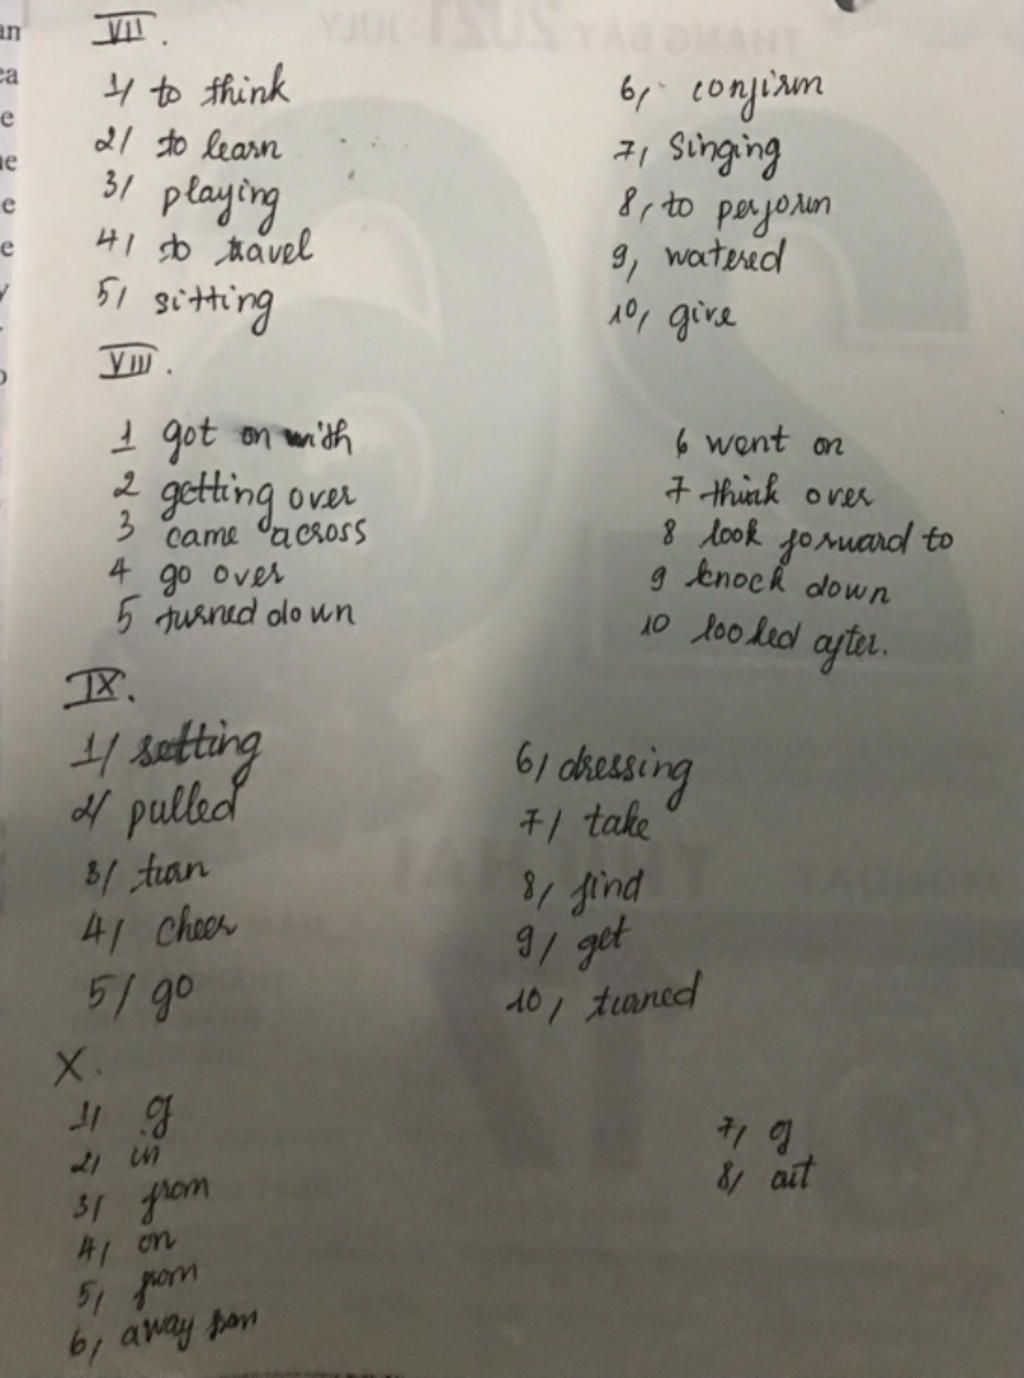 VII.
1/ to think
2/ to learn
3/ playing
4/ to travel
5/ sitting
6, confirm
7, Singing
8, to perform
9, watered
10, give
VIII.
1 got on with
2 getting over
3 came across
4 go over
5 turned down
6 went on
7 think over
8 look forward to
9 knock down
10 looked after.
IX.
1/ setting
2/ pulled
3/ turn
4/ cheer
5/ go
6/ dressing
7/ take
8/ find
9/ get
10/ turned
X.
1/ of
2/ in
3/ from
4/ on
5/ from
6, away from
7, of
8/ out
THANG BAY 2021 JULY
26
MONDAY